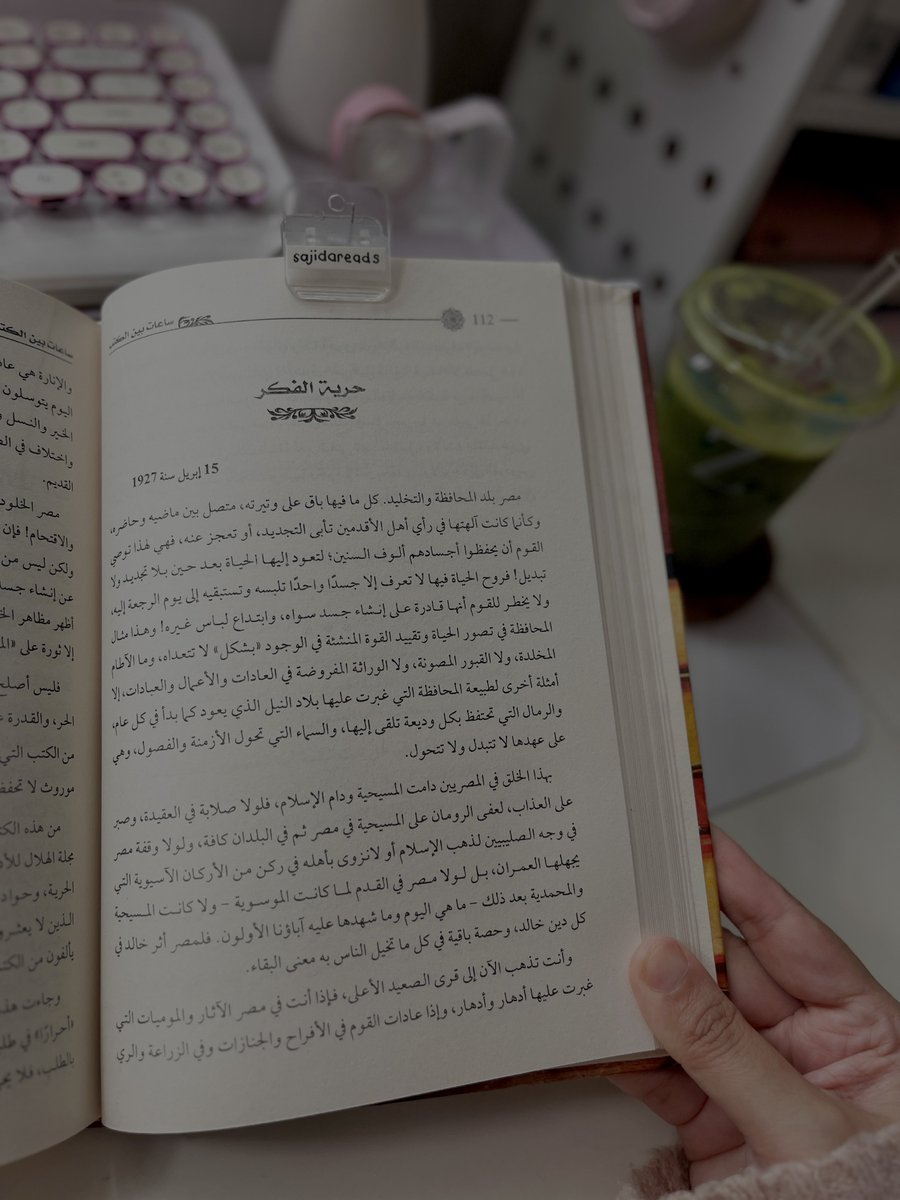 sajidareads
112
ساعات بين الكتب
حرية الفكر
15 إبريل سنة 1927
مصر بلد المحافظة والتخليد. كل ما فيها باق على وتيرته، متصل بين ماضيه وحاضره،
وكأنما كانت آلهتها في رأي أهل الأقدمين تأبى التجديد، أو تعجز عنه، فهي لهذا توصي
القوم أن يحفظوا أجسادهم ألوف السنين؛ لتعود إليها الحياة بعد حين بلا تجديد ولا
تبديل! فروح الحياة فيها لا تعرف إلا جسدًا واحدًا تلبسه وتستبقيه إلى يوم الرجعة إليه،
ولا يخطر للقوم أنها قادرة على إنشاء جسد سواه، وابتداع لباس غيره! وهذا مثال
المحافظة في تصور الحياة وتقييد القوة المنشئة في الوجود «بشكل» لا تتعداه، وما الآطام
المخلدة، ولا القبور المصونة، ولا الوراثة المفروضة في العادات والأعمال والعبادات، إلا
أمثلة أخرى لطبيعة المحافظة التي غبرت عليها بلاد النيل الذي يعود كما بدأ في كل عام،
والرمال التي تحتفظ بكل وديعة تلقى إليها، والسماء التي تحول الأزمنة والفصول، وهي
على عهدها لا تتبدل ولا تتحول.
بهذا الخلق في المصريين دامت المسيحية ودام الإسلام، فلولا صلابة في العقيدة، وصبر
على العذاب، لعفى الرومان على المسيحية في مصر ثم في البلدان كافة، ولولا وقفة مصر
في وجه الصليبيين لذهب الإسلام أو لانزوى بأهله في ركن من الأركان الآسيوية التي
يجهلها العمران، بل لولا مصر في القدم لما كانت الموسوية – ولا كانت المسيحية
والمحمدية بعد ذلك – ما هي اليوم وما شهدها عليه آباؤنا الأولون. فلمصر أثر خالد في
كل دين خالد، وحصة باقية في كل ما تخيل الناس به معنى البقاء.
وأنت تذهب الآن إلى قرى الصعيد الأعلى، فإذا أنت في مصر الآثار والموميات التي
غبرت عليها أدهار وأدهار، وإذا عادات القوم في الأفراح والجنازات وفي الزراعة والري
ساعات بين الكتب
والإنارة هي
اليوم يتوسلون
الخير والنسل
واختلاف في
القديم.
مصر الخلود
والاقتحام! فإن
ولكن ليس من
عن إنشاء جسد
أظهر مظاهر
إلا ثورة على
فليس أصلح
الحر، والقدرة
من الكتب التي
موروث لا
من هذه
مجلة الهلال
الحرية،
الذين لا
يألفون من
وجاءت
في
بالطلب، فلا